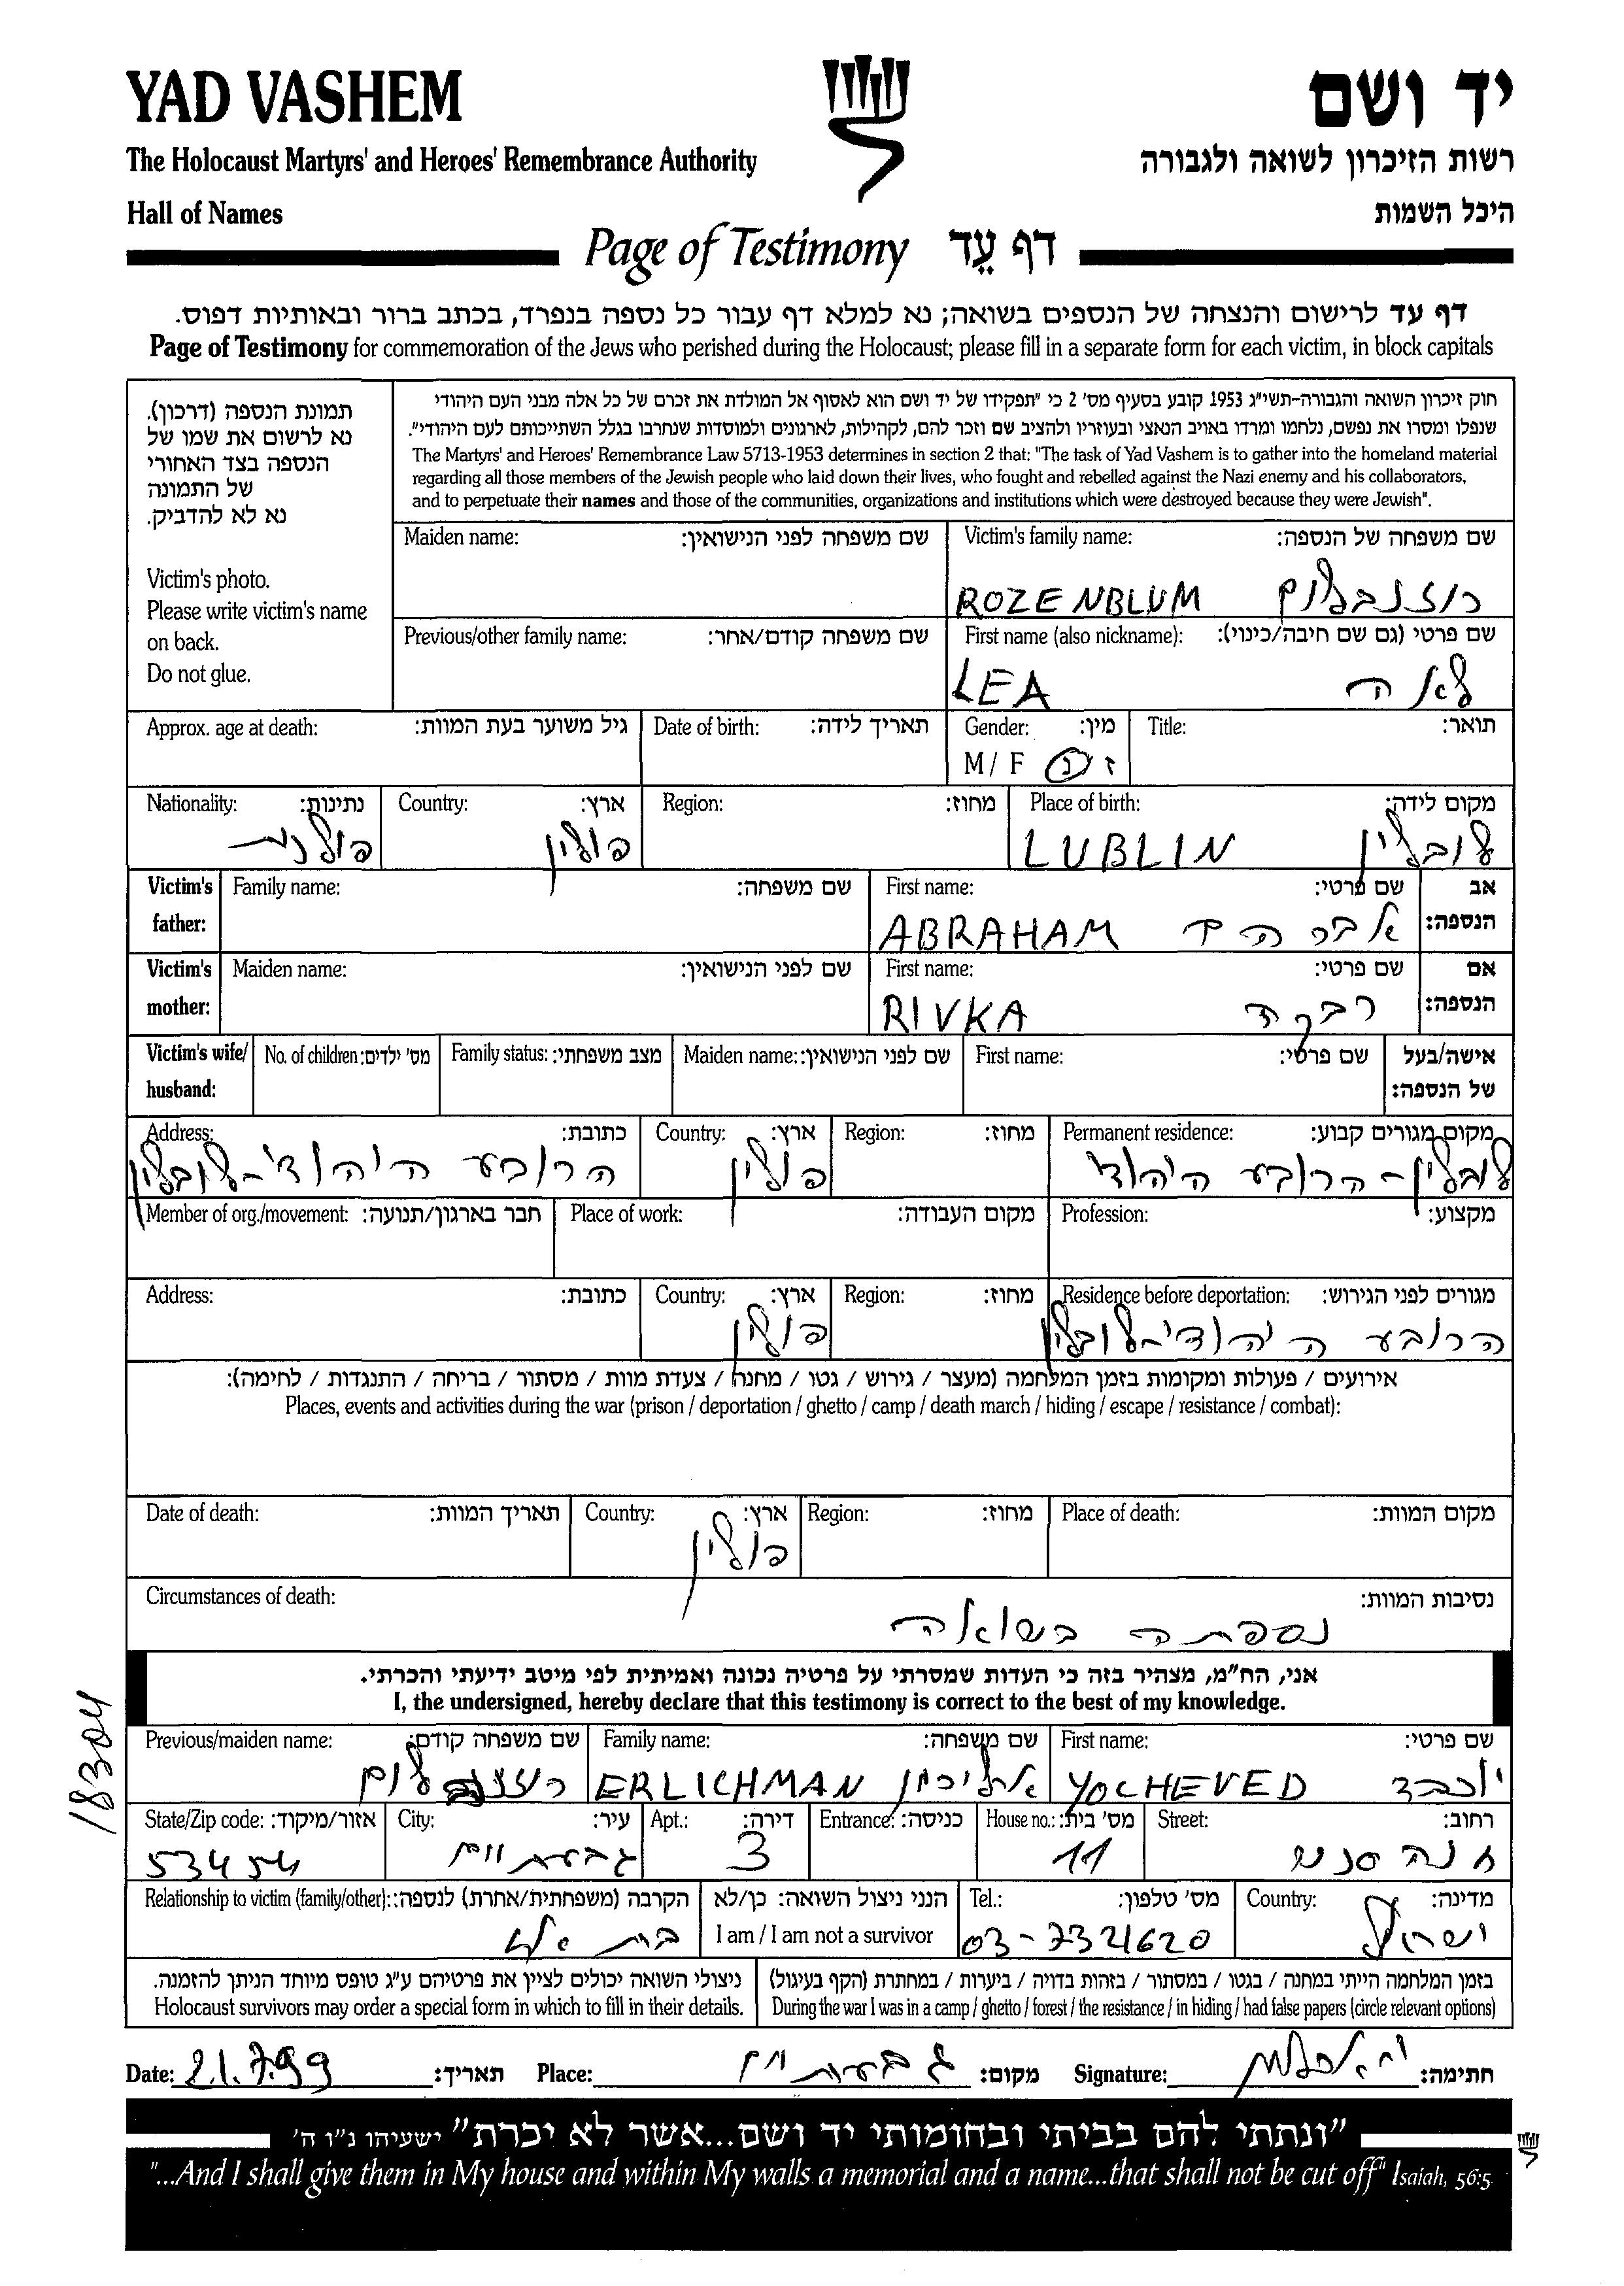 YAD VASHEM
יד ושם
The Holocaust Martyrs' and Heroes' Remembrance Authority
רשות הזיכרון לשואה ולגבורה
Hall of Names
היכל השמות
Page of Testimony דף עֵד
דף עד לרישום והנצחה של הנספים בשואה; נא למלא דף עבור כל נספה בנפרד, בכתב ברור ובאותיות דפוס.
Page of Testimony for commemoration of the Jews who perished during the Holocaust; please fill in a separate form for each victim, in block capitals
תמונת הנספה (דרכון).
נא לרשום את שמו של
הנספה בצד האחורי
של התמונה
נא לא להדביק.
Victim's photo.
Please write victim's name
on back.
Do not glue.
חוק זיכרון השואה והגבורה-תשי"ג 1953 קובע בסעיף מס' 2 כי "תפקידו של יד ושם הוא לאסוף אל המולדת את זכרם של כל אלה מבני העם היהודי
שנפלו ומסרו את נפשם, נלחמו ומרדו באויב הנאצי ובעוזריו ולהציב שם וזכר להם, לקהילות, לארגונים ולמוסדות שנחרבו בגלל השתייכותם לעם היהודי".
The Martyrs' and Heroes' Remembrance Law 5713-1953 determines in section 2 that: "The task of Yad Vashem is to gather into the homeland material
regarding all those members of the Jewish people who laid down their lives, who fought and rebelled against the Nazi enemy and his collaborators,
and to perpetuate their names and those of the communities, organizations and institutions which were destroyed because they were Jewish".
Maiden name: שם משפחה לפני הנישואין:
Victim's family name: שם משפחה של הנספה:
ROZENBLUM רוזנבלום
Previous/other family name: שם משפחה קודם/אחר:
First name (also nickname): שם פרטי (גם שם חיבה/כינוי):
LEA לאה
Approx. age at death: גיל משוער בעת המוות:
Date of birth: תאריך לידה:
Gender: מין:
M / F ז / נ
Title: תואר:
Nationality: נתינות:
פולנית
Country: ארץ:
פולין
Region: מחוז:
Place of birth: מקום לידה:
LUBLIN לובלין
Victim's father: Family name: שם משפחה:
First name: שם פרטי:
ABRAHAM אברהם
אב הנספה:
Victim's mother: Maiden name: שם לפני הנישואין:
First name: שם פרטי:
RIVKA רבקה
אם הנספה:
Victim's wife/ husband: No. of children: מס' ילדים: Family status: מצב משפחתי: Maiden name: שם לפני הנישואין: First name: שם פרטי: אישה/בעל של הנספה:
Address: כתובת:
הרובע היהודי-לובלין
Country: ארץ:
פולין
Region: מחוז:
Permanent residence: מקום מגורים קבוע:
לובלין - הרובע היהודי
Member of org./movement: חבר בארגון/תנועה:
Place of work: מקום העבודה:
Profession: מקצוע:
Address: כתובת:
Country: ארץ:
פולין
Region: מחוז:
Residence before deportation: מגורים לפני הגירוש:
הרובע היהודי-לובלין
אירועים / פעולות ומקומות בזמן המלחמה (מעצר / גירוש / גטו / מחנה / צעדת מוות / מסתור / בריחה / התנגדות / לחימה):
Places, events and activities during the war (prison / deportation / ghetto / camp / death march / hiding / escape / resistance / combat):
Date of death: תאריך המוות:
Country: ארץ:
פולין
Region: מחוז:
Place of death: מקום המוות:
Circumstances of death: נסיבות המוות:
נספתה בשואה
אני, הח"מ, מצהיר בזה כי העדות שמסרתי על פרטיה נכונה ואמיתית לפי מיטב ידיעתי והכרתי.
I, the undersigned, hereby declare that this testimony is correct to the best of my knowledge.
18304
Previous/maiden name: שם משפחה קודם:
Family name: שם משפחה:
ERLICHMAN ארליכמן
First name: שם פרטי:
YOCHEVED יוכבד
State/Zip code: אזור/מיקוד:
53454
City: עיר:
גבעתיים
Apt.: דירה:
3
Entrance: כניסה:
House no.: מס' בית:
11
Street: רחוב:
חנה סנש
Relationship to victim (family/other): הקרבה (משפחתית/אחרת) לנספה:
הנני ניצול השואה: כן/לא
I am / I am not a survivor
Tel.: מס' טלפון:
03-7321620
Country: מדינה:
ישראל
ניצולי השואה יכולים לציין את פרטיהם ע"ג טופס מיוחד הניתן להזמנה.
Holocaust survivors may order a special form in which to fill in their details.
בזמן המלחמה הייתי במחנה / בגטו / במסתור / בזהות בדויה / ביערות / במחתרת (הקף בעיגול)
During the war I was in a camp / ghetto / forest / the resistance / in hiding / had false papers (circle relevant options)
Date: 21.7.99 תאריך: Place: גבעתיים מקום: Signature: חתימה:
"ונתתי להם בביתי ובחומותי יד ושם...אשר לא יכרת" ישעיהו נ"ו ה'
"...And I shall give them in My house and within My walls a memorial and a name...that shall not be cut off" Isaiah, 56:5